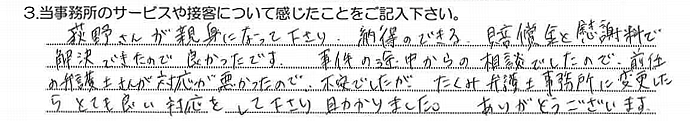 3.当事務所のサービスや接客について感じたことをご記入下さい。
荻野さんが親身になって下さり、納得のできる、賠償金と慰謝料で
解決できたので良かったです。事件の途中からの相談でしたので、前任
の弁護士さんが対応が悪かったので、不安でしたが、たくみ弁護士事務所に変更した
らとても良い対応をして下さり助かりました。ありがとうございます。